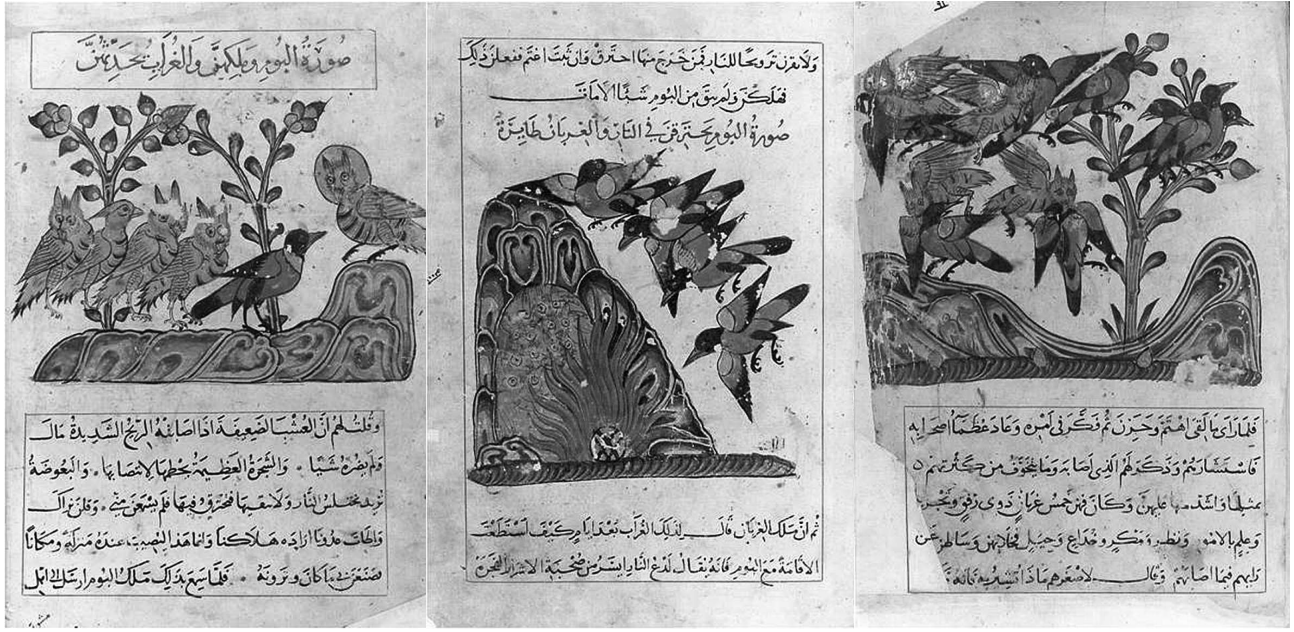 صورة البوم وملكهن والغراب يحدثهن
وقلت لهم ان العشب الضعيفة اذا اصابته الريح الشديدة مال
ولم يضره شيئا والشجرة العظيمة يحطمها لانتصابها والبعوضة
تريد النار ولا تتقيها فتحترق فيها فلم يسمعن مني وقلن نراك
عدونا اراد هلاكنا وانما هذه النصيبة عنده منزلة ومكانا
فصنعن بي ما كان وترونه فلما سمع بذلك ملك البوم ارسل الى
ولا يقرن ترويحا للنار فمن خرج منها احترق وان ثبت اغتم ففعلن ذلك
فهلكن ولم يبق من البوم شيئا الا مات
صورة البوم يحترقن في النار والغربان طايرة
ثم ان ملك الغربان قال لذلك الغراب بعد ايام كيف استطعت
الاقامة مع البوم فانه يقال لذع النار ايسر من صحبة الاشرار الفجرة
فلما راى ما لقي اهتم وحزن ثم فكر في امره وعاد عظما اصحابه
فاستشارهم وذكر لهم الذي اصابه وما يتخوف من كثرتهم
وكان فيهن خمس غربان ذوي رفق
وعلم بالامور ونظر ومكر وخداع وحيل وسالهن عن
رايهم فيما اصابهم وقال لاصغرهم ماذا تشير به